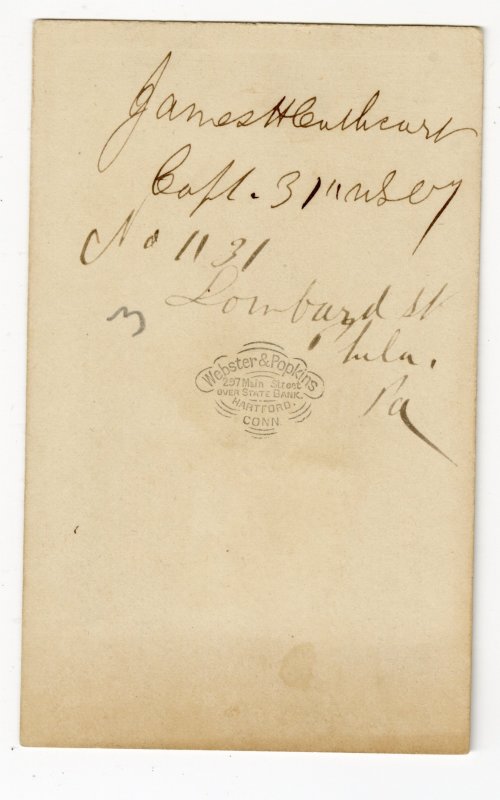 James H Cuthcart
Capt. 31"
No 1131
Lombard St
Phila.
Pa
3
Webster & Popkins
297 Main Street
OVER STATE BANK.
HARTFORD.
CONN.